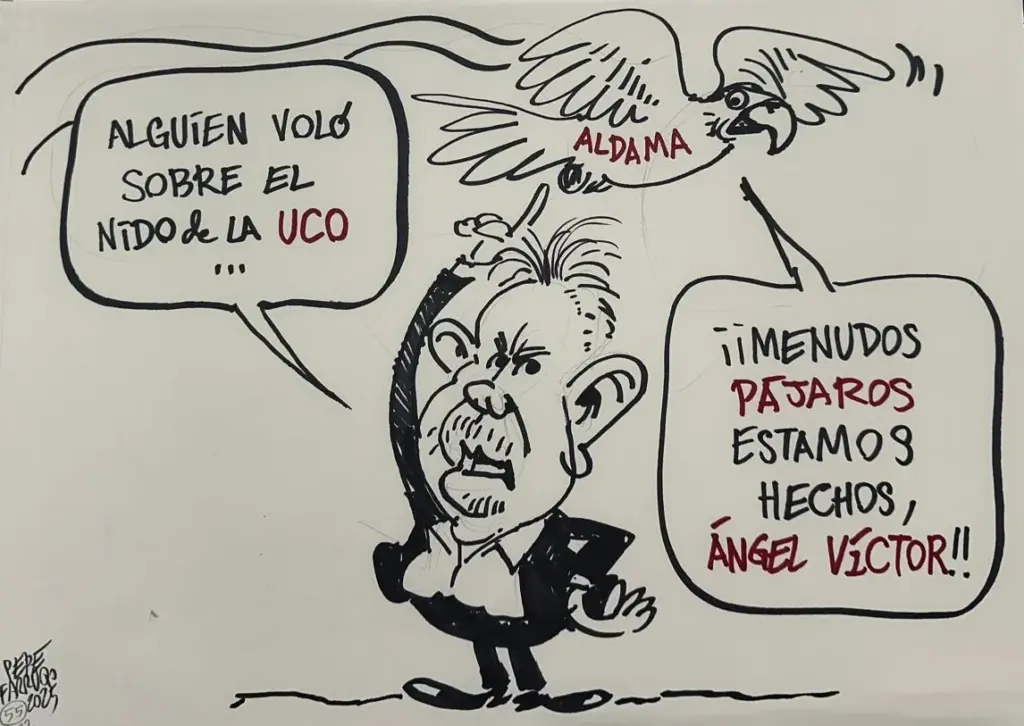 ALGUIEN VOLÓ
SOBRE EL
NIDO de LA UCO
...
ALDAMA
¡¡MENUDOS
PÁJAROS
ESTAMOS
HECHOS,
ÁNGEL VÍCTOR!!
PEPE
2025
55